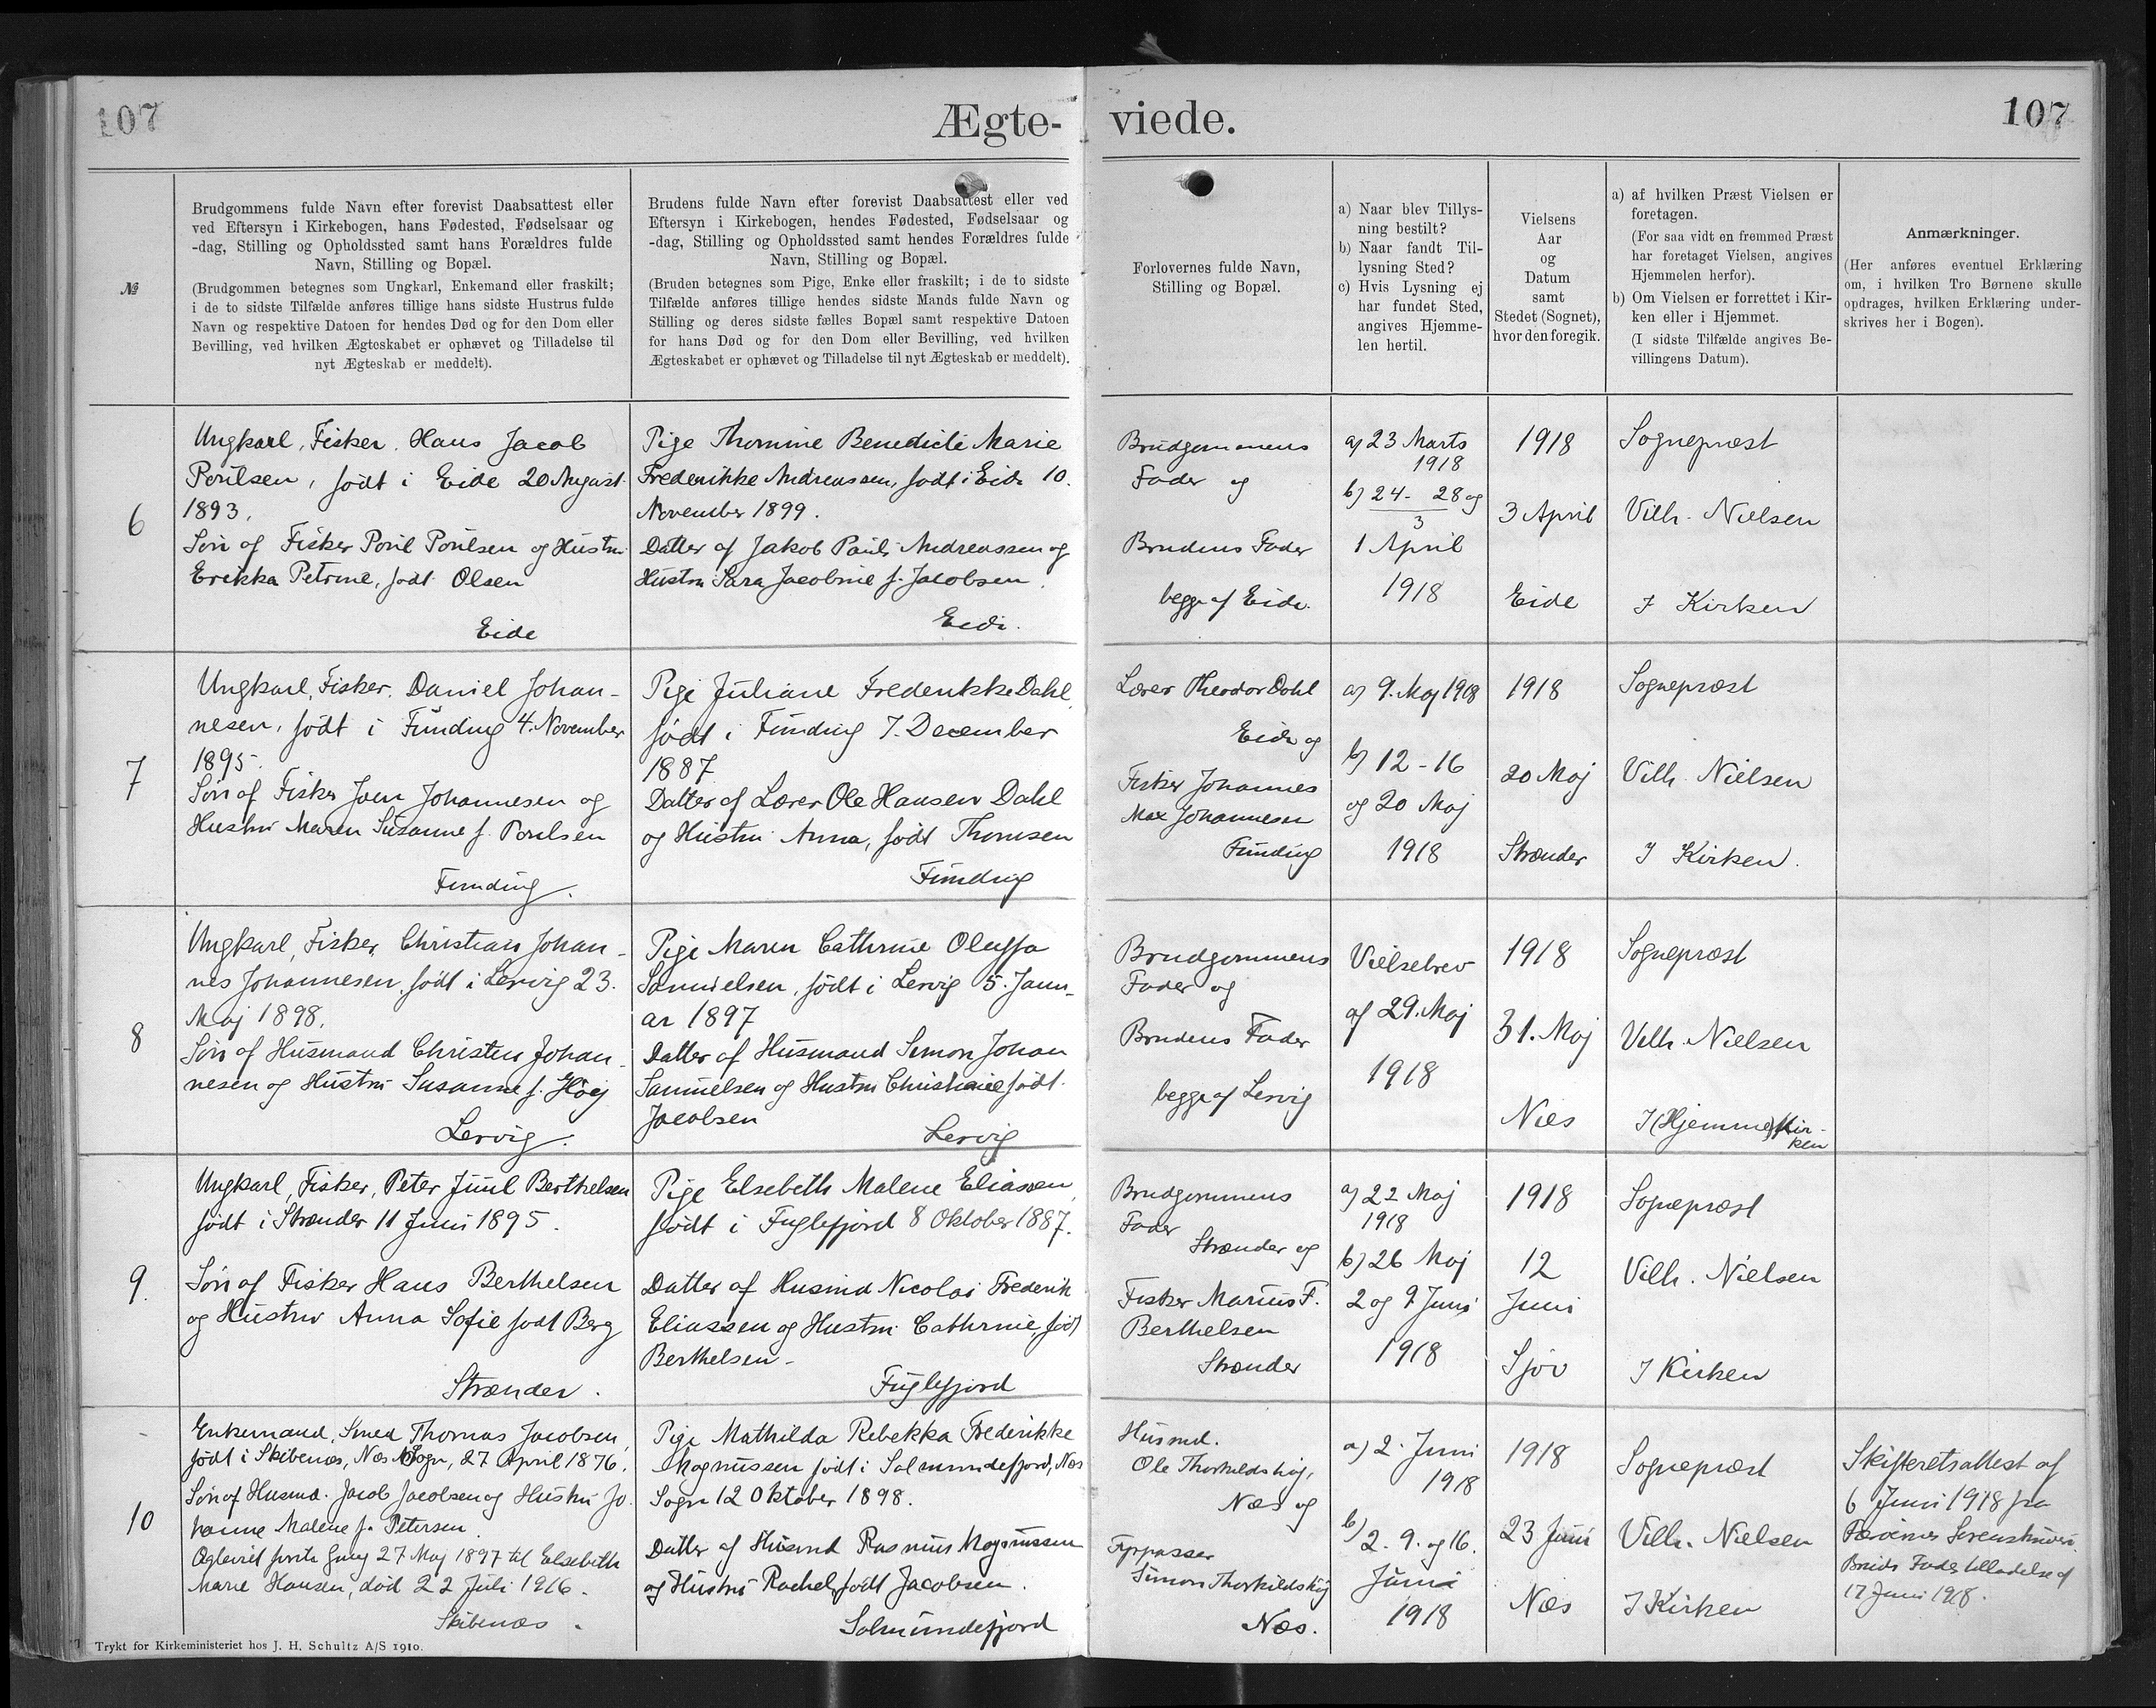 107
Ægte-
viede.
107
№
Brudgommens fulde Navn efter forevist Daabsattest eller
ved Eftersyn i Kirkebogen, hans Fødested, Fødselsaar og
-dag, Stilling og Opholdssted samt hans Forældres fulde
Navn, Stilling og Bopæl.
(Brudgommen betegnes som Ungkarl, Enkemand eller fraskilt;
i de to sidste Tilfælde anføres tillige hans sidste Hustrus fulde
Navn og respektive Datoen for hendes Død og for den Dom eller
Bevilling, ved hvilken Ægteskabet er ophævet og Tilladelse til
nyt Ægteskab er meddelt).
Brudens fulde Navn efter forevist Daabsattest eller ved
Eftersyn i Kirkebogen, hendes Fødested, Fødselsaar og
-dag, Stilling og Opholdssted samt hendes Forældres fulde
Navn, Stilling og Bopæl.
(Bruden betegnes som Pige, Enke eller fraskilt; i de to sidste
Tilfælde anføres tillige hendes sidste Mands fulde Navn og
Stilling og deres sidste fælles Bopæl samt respektive Datoen
for hans Død og for den Dom eller Bevilling, ved hvilken
Ægteskabet er ophævet og Tilladelse til nyt Ægteskab er meddelt).
Forlovernes fulde Navn,
Stilling og Bopæl.
a) Naar blev Tillys-
ning bestilt?
b) Naar fandt Til-
lysning Sted?
c) Hvis Lysning ej
har fundet Sted,
angives Hjemme-
len hertil.
Vielsens
Aar
og
Datum
samt
Stedet (Sognet),
hvor den foregik.
a) af hvilken Præst Vielsen er
foretagen.
(For saa vidt en fremmed Præst
har foretaget Vielsen, angives
Hjemmelen herfor).
b) Om Vielsen er forrettet i Kir-
ken eller i Hjemmet.
(I sidste Tilfælde angives Be-
villingens Datum).
Anmærkninger.
(Her anføres eventuel Erklæring
om, i hvilken Tro Børnene skulle
opdrages, hvilken Erklæring under-
skrives her i Bogen).
6
Ungkarl, Fisker, Hans Jacob
Poulsen, født i Eide 20 August
1893.
Søn af Fisker Poul Poulsen og Hustru
Erikka Petrine, født Olsen
Eide
Pige Thomine Benedicte Marie
Frederikke Andreassen, født i Eide 10.
November 1899.
Datter af Jakob Pauli Andreassen og
Hustru Sara Jacobine f. Jacobsen.
Eide.
Brudgommens
Fader og
Brudens Fader
begge af Eide.
a) 23 Marts
1918
b) 24 - 28 og
3
1 April
1918
1918
3 April
Eide
Sognepræst
Vilh. Nielsen
I Kirken
7
Ungkarl, Fisker, Daniel Johan-
nesen, født i Funding 4. November
1895.
Søn af Fisker Joen Johannesen og
Hustru Maren Susanne f. Poulsen
Funding.
Pige Juliane Frederikke Dahl,
født i Funding 7. December
1887
Datter af Lærer Ole Hansen Dahl
og Hustru Anna, født Thomsen
Funding
Lærer Theodor Dahl
Eide og
Fisker Johannes
Max Johannesen
Funding
a) 9. Maj 1918
b) 12 - 16
og 20 Maj
1918
1918
20 Maj
Strænder
Sognepræst
Vilh. Nielsen
I Kirken.
8
Ungkarl, Fisker, Christian Johan-
nes Johannesen, født i Lervig 23.
Maj 1898.
Søn af Husmand Christen Johan-
nesen og Hustru Susanne f. Høj
Lervig.
Pige Maren Cathrine Oluffa
Samuelsen, født i Lervig 5. Janu-
ar 1897
Datter af Husmand Simon Johan
Samuelsen og Hustru Christiane født
Jacobsen
Lervig
Brudgommens
Fader og
Brudens Fader
begge af Lervig
Vielsebrev
af 29. Maj
1918
1918
31. Maj
Næs
Sognepræst
Vilh. Nielsen
I (Hjemmet) Kir-
ken
9.
Ungkarl, Fisker, Peter Juul Berthelsen
født i Strænder 11 Juni 1895.
Søn af Fisker Hans Berthelsen
og Hustru Anna Sofie født Berg
Strænder.
Pige Elsebeth Malene Eliassen,
født i Fuglefjord 8 Oktober 1887.
Datter af Husmd Nicolai Frederik
Eliassen og Hustru Cathrine, født
Berthelsen -
Fuglefjord
Brudgommens
Fader
Strænder og
Fisker Marius F.
Berthelsen
Strænder
a) 22 Maj
1918
b) 26 Maj
2 og 9 Juni
1918
1918
12
Juni
Sjov
Sognepræst
Vilh. Nielsen
I Kirken
10
Enkemand, Smed Thomas Jacobsen,
født i Skibenæs, Næs Sogn, 27 April 1876.
Søn af Husmd. Jacob Jacobsen og Hustru Jo-
hanne Malene f. Petersen.
Ogteviet første Gang 27 Maj 1897 til Elsebeth
Marie Hansen, død 22 Juli 1916.
Skibenæs.
Pige Mathilda Rebekka Frederikke
Magnussen født i Solmundefjord, Næs
Sogn 12 Oktober 1898.
Datter af Husmd Rasmus Magnussen
og Hustru Rachel, født Jacobsen.
Solmundefjord
Husmd.
Ole Thorkildshøj,
Næs og
Fyrpasser
Simon Thorkildshøj
Næs.
a) 2. Juni
1918
b) 2. 9. og 16.
Juni
1918
1918
23 Juni
Næs
Sognepræst
Vilh. Nielsen
I Kirken
Skifteretsattest af
6 Juni 1918 fra
Færøernes Sorenskriveri.
Bruds Fader tilladelse af
17 Juni 1918.
Trykt for Kirkeministeriet hos J. H. Schultz A/S 1910.